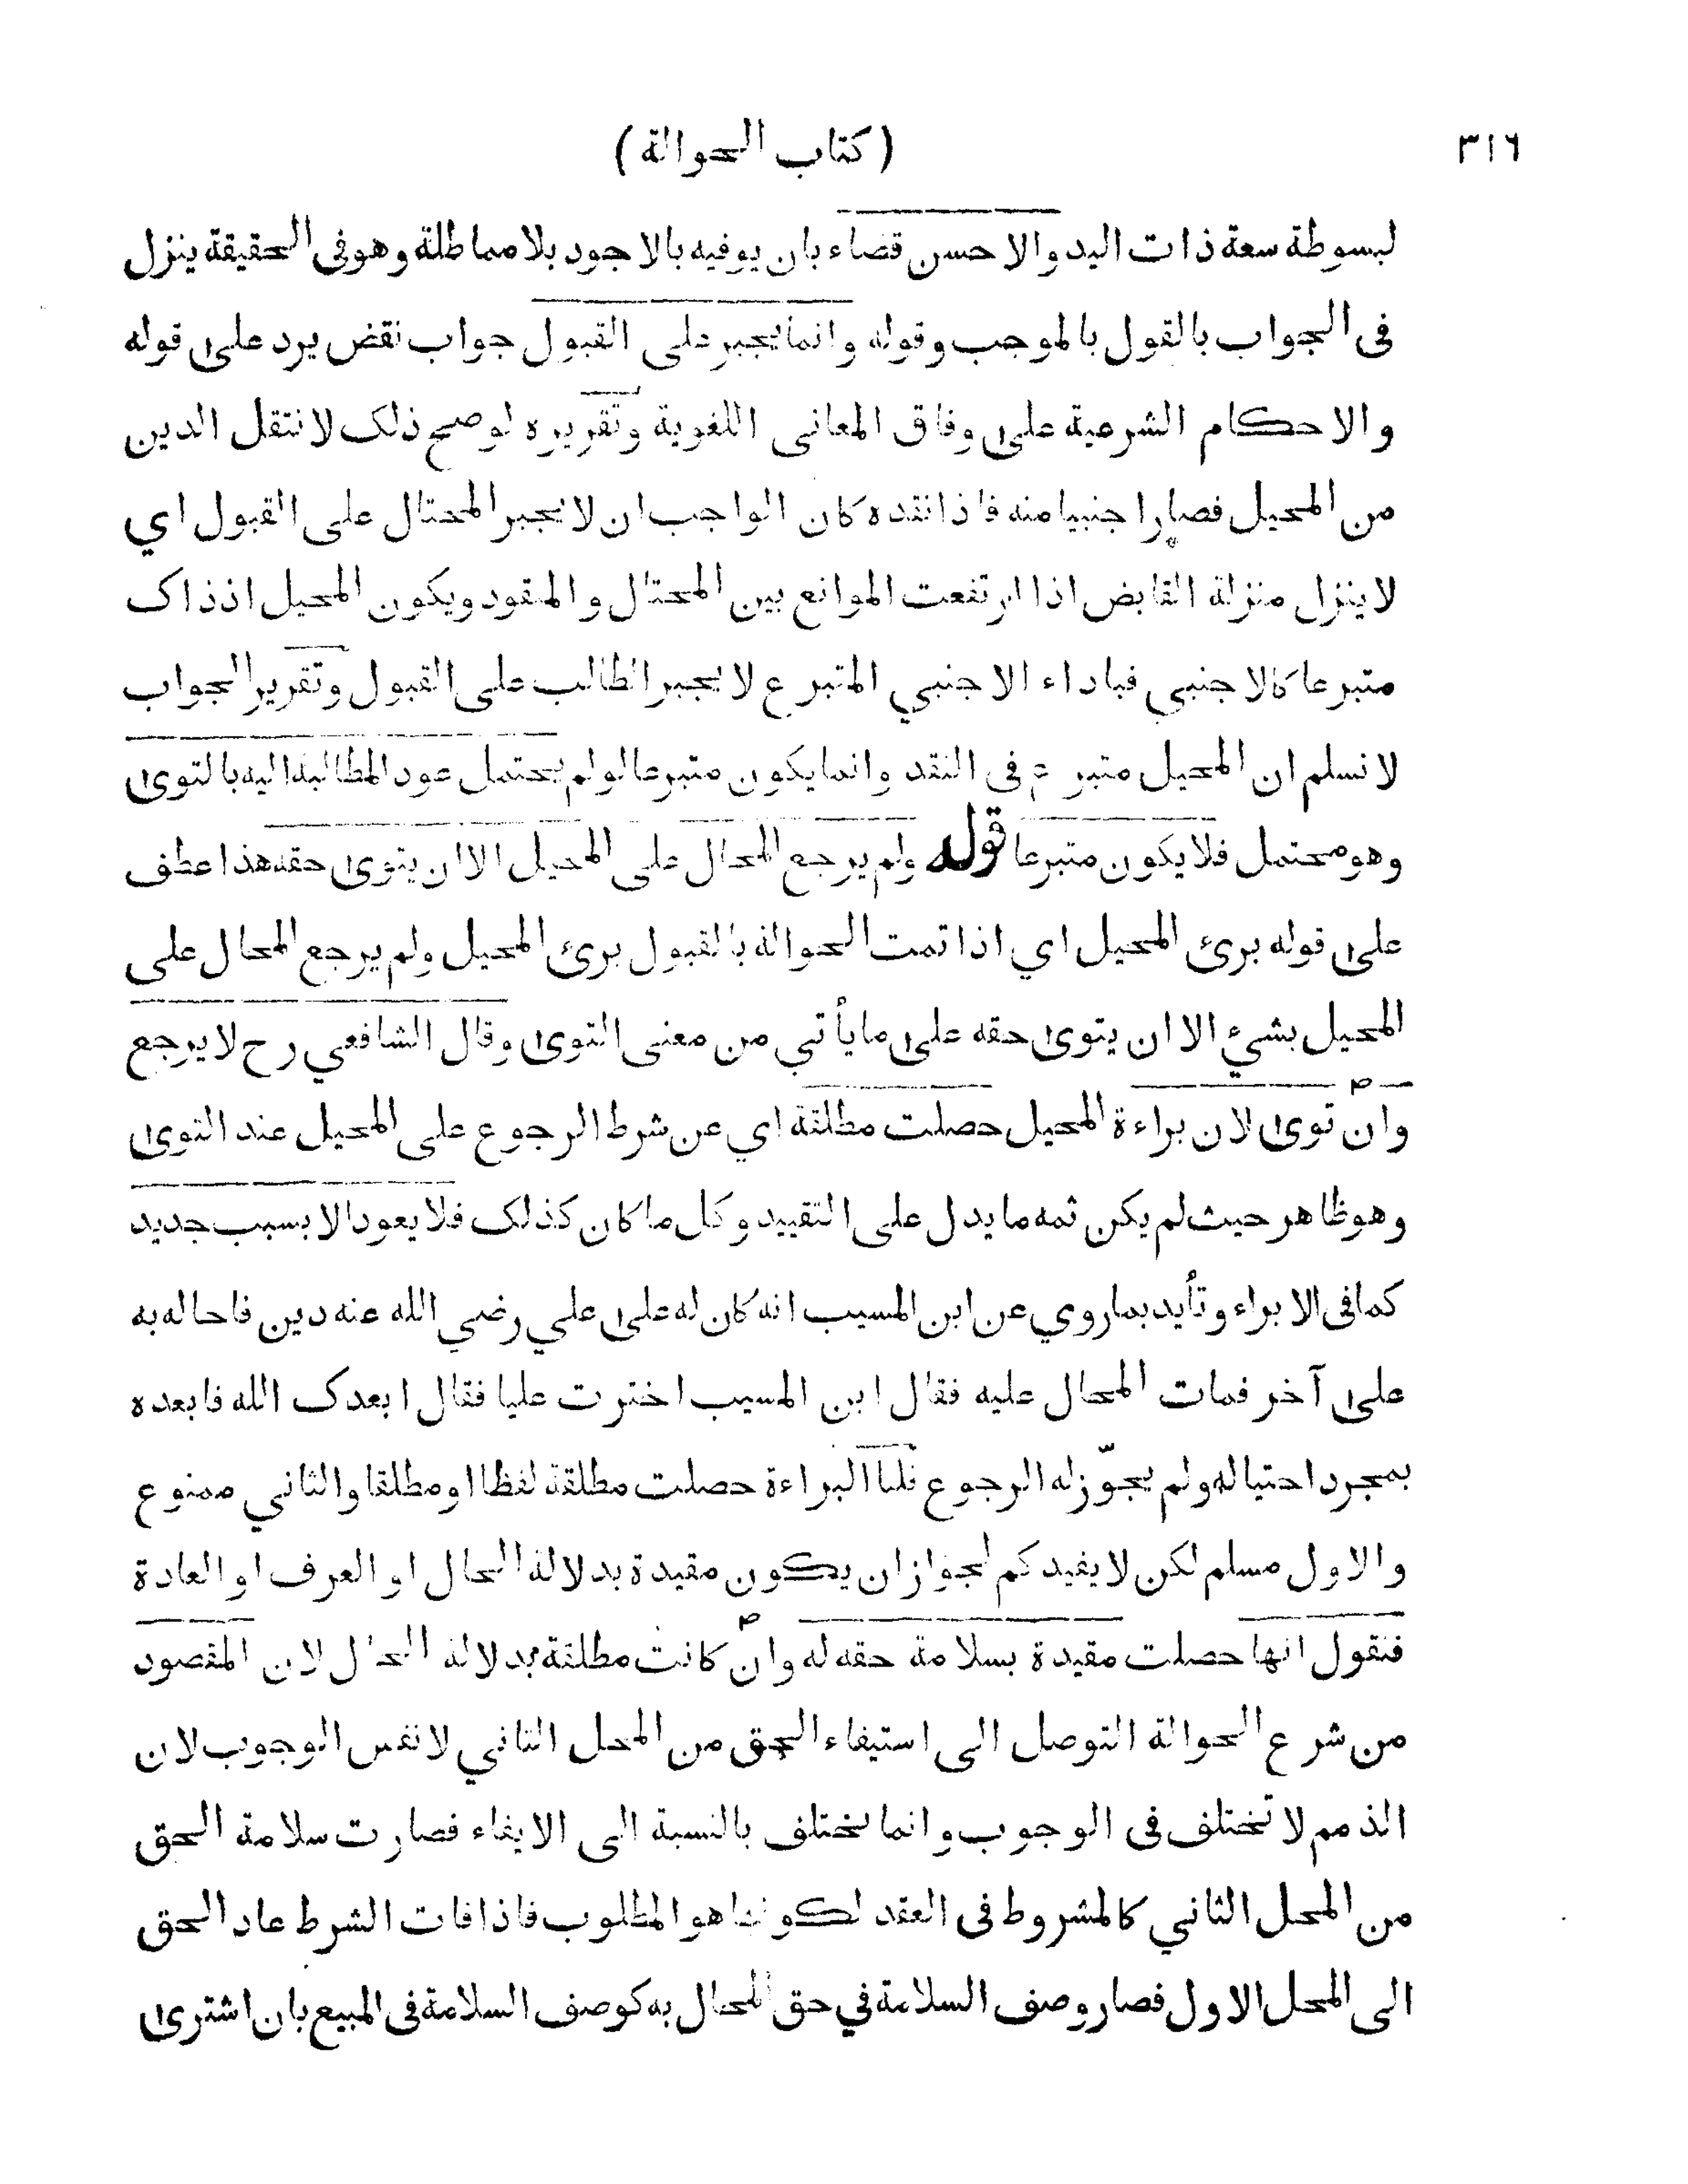 ٣١٦ (كتاب الحوالة)
لبسوطة سعة ذات اليد والاحسن قضاء بان يوفيه بالاجود بلا مماطلة وهو فى الحقيقة ينزل
فى الجواب بالقول بالموجب وقوله وانما يجبر على القبول جواب نقض يرد على قوله
والاحكام الشرعية على وفاق المعانى اللغوية وتقريره لو صح ذلك لانتقل الدين
من المحيل فصار اجنبيا منه فاذا نقده كان الواجب ان لا يجبر المحتال على القبول اي
لا ينزل منزلة القابض اذا ارتفعت الموانع بين المحتال والمنقود ويكون المحيل اذ ذاك
متبرعا كالاجنبي فباداء الاجنبي المتبرع لا يجبر الطالب على القبول وتقرير الجواب
لا نسلم ان المحيل متبرع فى النقد وانما يكون متبرعا لو لم يحتمل عود المطالبة اليه بالتوى
وهو محتمل فلا يكون متبرعا قوله ولم يرجع المحال على المحيل الا ان يتوى حقه هذا عطف
على قوله برئ المحيل اي اذا تمت الحوالة بالقبول برئ المحيل ولم يرجع المحال على
المحيل بشيء الا ان يتوى حقه على ما يأتي من معنى التوى وقال الشافعي رح لا يرجع
وان توى لان براءة المحيل حصلت مطلقة اي عن شرط الرجوع على المحيل عند التوى
وهو ظاهر حيث لم يكن ثمه ما يدل على التقييد وكل ما كان كذلك فلا يعود الا بسبب جديد
كما فى الابراء وتأيد بما روي عن ابن المسيب انه كان له على علي رضي الله عنه دين فاحاله به
على آخر فمات المحال عليه فقال ابن المسيب اخترت عليا فقال ابعدك الله فابعده
بمجرد احتياله ولم يجوّز له الرجوع قلنا البراءة حصلت مطلقة لفظا او مطلقا والثاني ممنوع
والاول مسلم لكن لا يفيدكم لجواز ان يكون مقيدة بدلالة الحال او العرف او العادة
فنقول انها حصلت مقيدة بسلامة حقه له وان كانت مطلقة بدلالة الحال لان المقصود
من شرع الحوالة التوصل الى استيفاء الحق من المحل الثاني لا نفس الوجوب لان
الذمم لا تختلف فى الوجوب وانما تختلف بالنسبة الى الايفاء فصارت سلامة الحق
من المحل الثاني كالمشروط فى العقد لكونها هو المطلوب فاذا فات الشرط عاد الحق
الى المحل الاول فصار وصف السلامة في حق المحال به كوصف السلامة فى المبيع بان اشترى